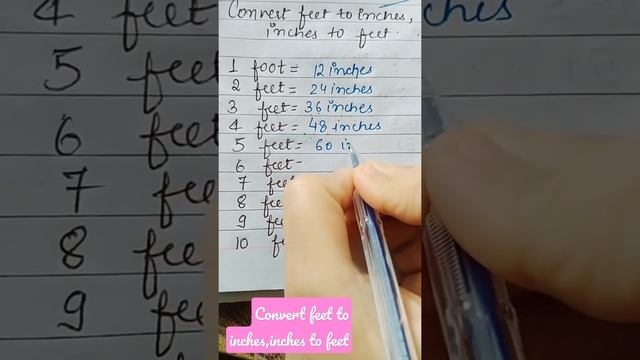 Convert feet to inches,
inches to feet.
1 foot = 12 inches
2 feet = 24 inches
3 feet = 36 inches
4 feet = 48 inches
5 feet = 60 i
6 feet =
7 feet
8 fee
9 fee
10 fe
Convert feet to
inches,inches to feet
4 feet
5 feet
6 feet
7 feet
8 fee
9 fe